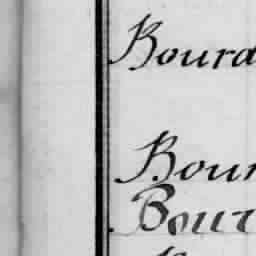 Bourd
Bour
Bour